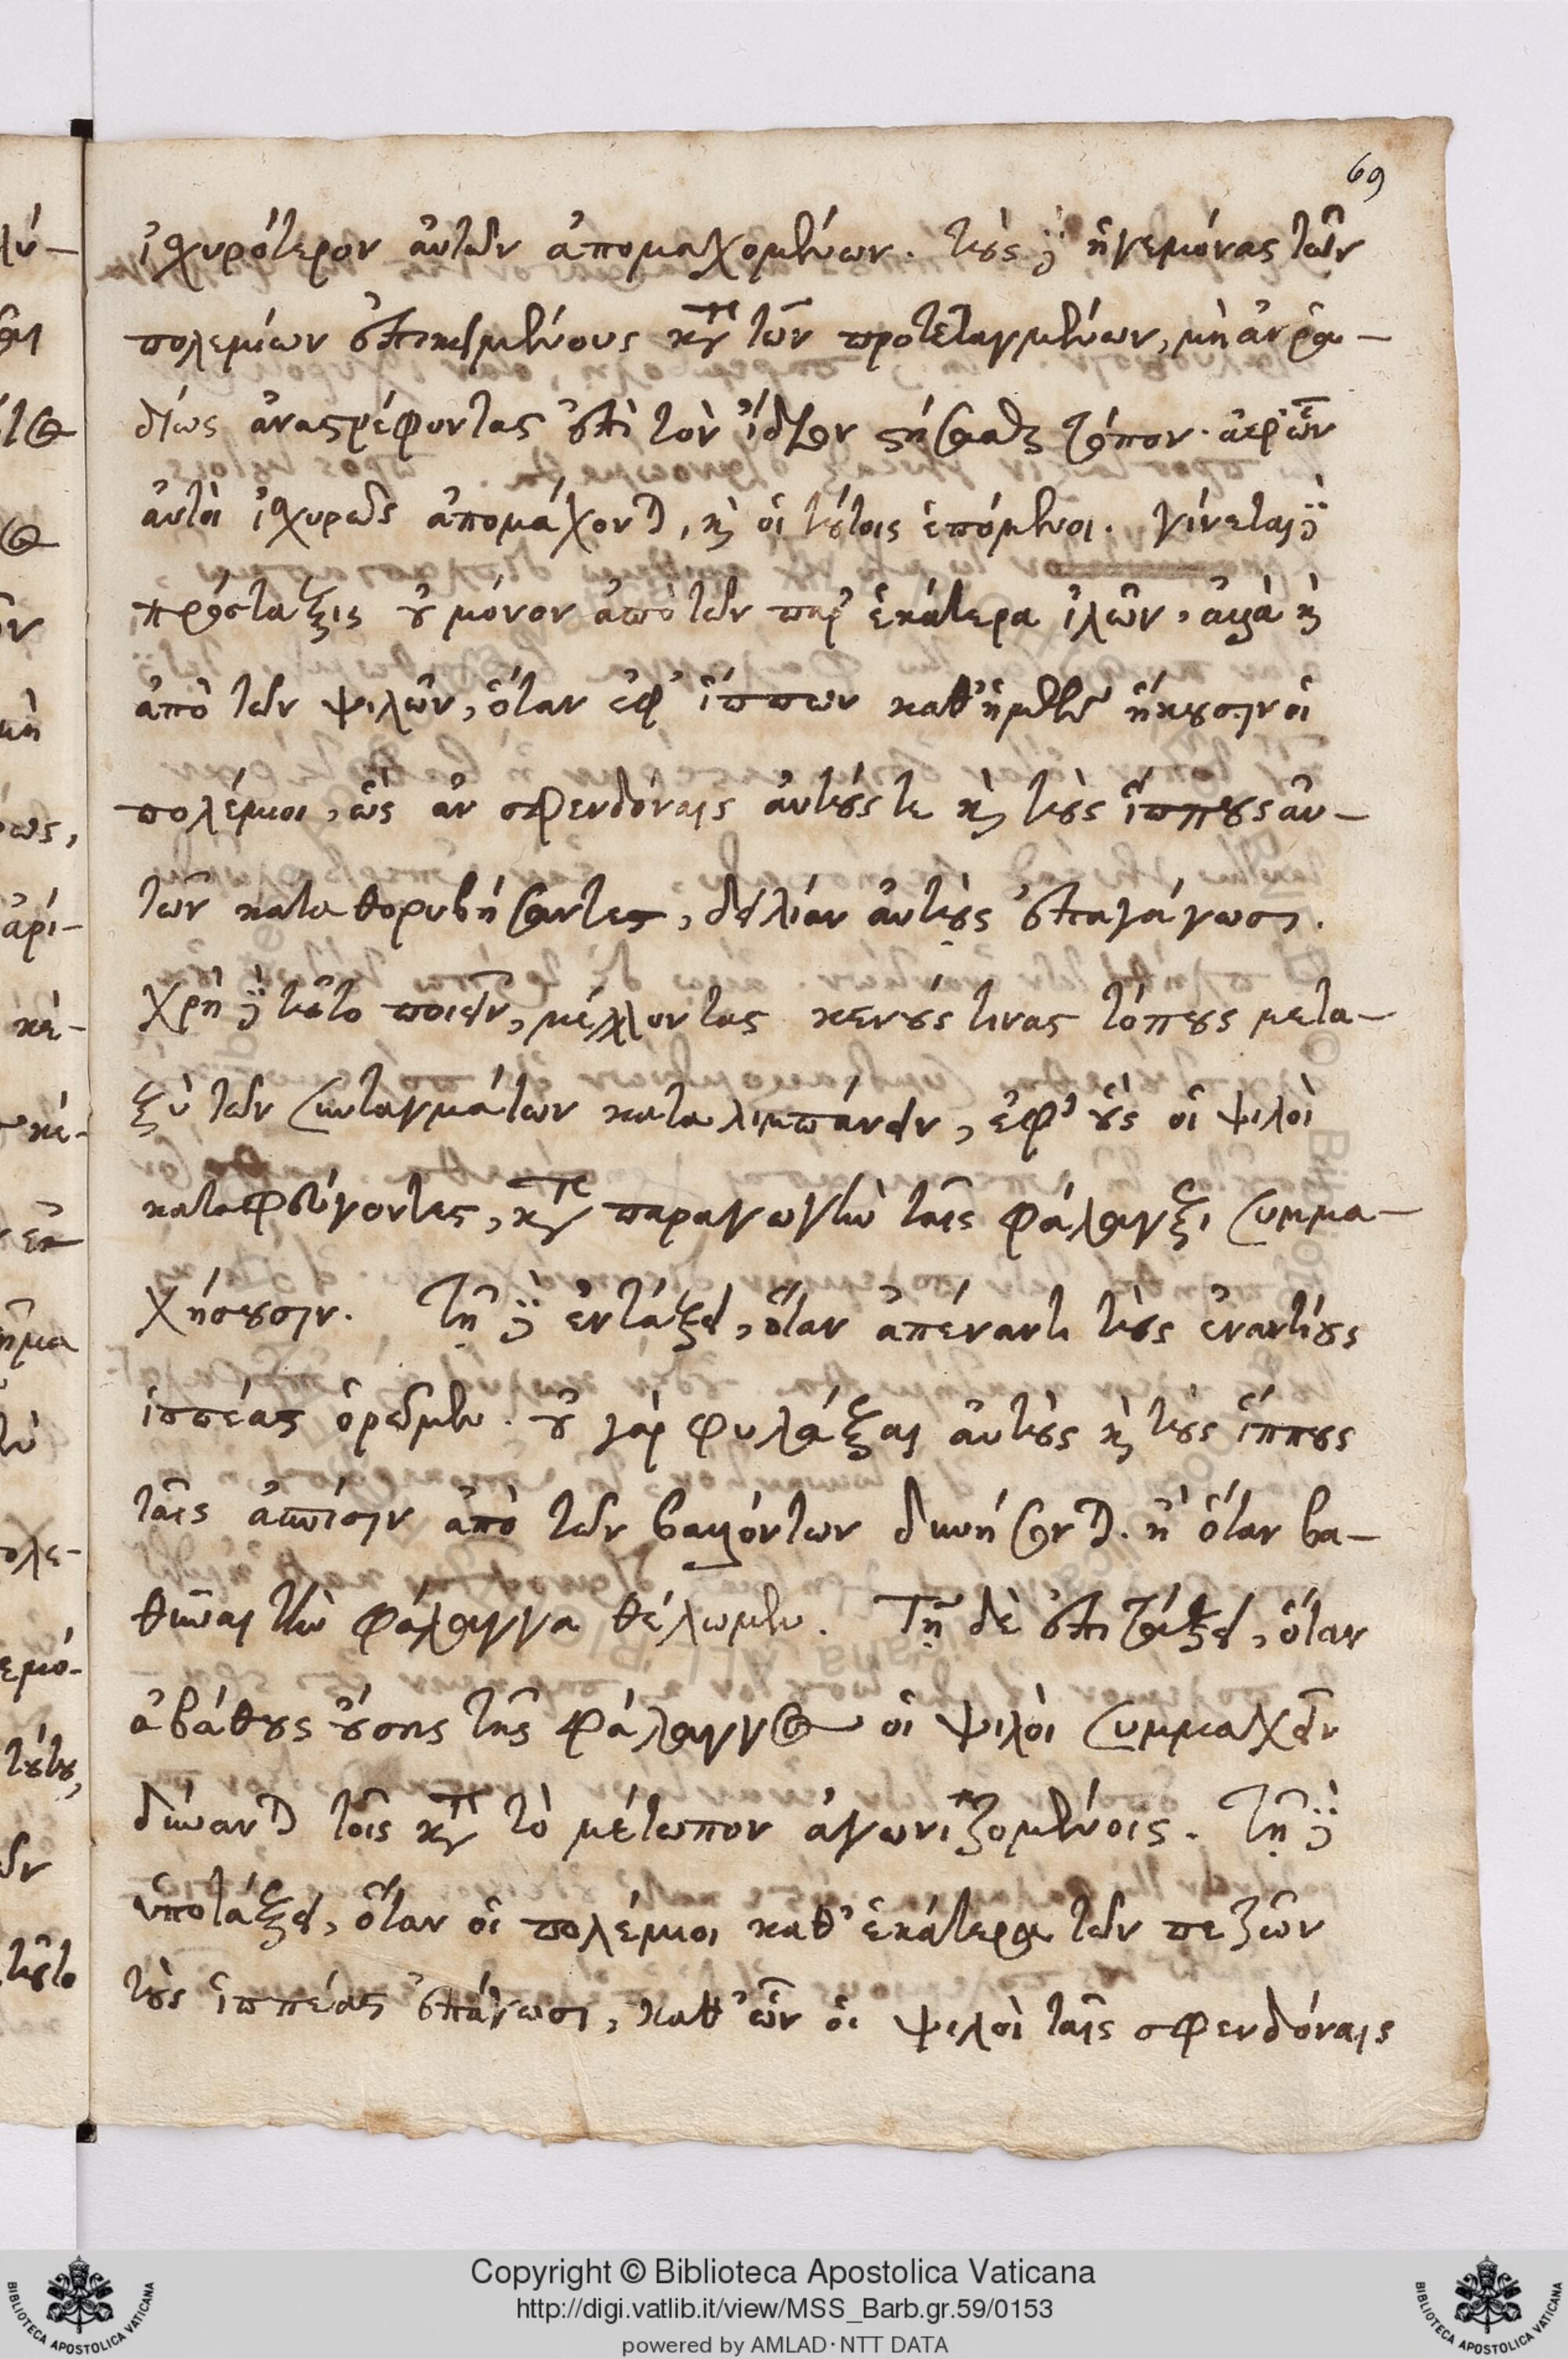 69
ἰσχυρότερον αὐτῶν ἀπομαχομένων. τοὺς δὲ ἡγεμόνας τῶν
πολεμίων ἐπικειμένους κατὰ τῶν προτεταγμένων, μὴ ἂν ῥα-
δίως ἀναστρέφοντας ἐπὶ τὸν ἴδιον στήσασθαι τόπον.
αὐτοὶ ἰσχυρῶς ἀπομάχονται, καὶ οἱ τούτοις ἑπόμενοι. γίνεται δὲ
πρόσταξις οὐ μόνον ἀπὸ τῶν παρ' ἑκάτερα ἰλῶν, ἀλλὰ καὶ
ἀπὸ τῶν ψιλῶν, ὅταν ἐφ' ἵππων καθ' ἡμῶν ἥκουσιν οἱ
πολέμιοι, ὡς ἂν σφενδόναις αὐτούς τε καὶ τοὺς ἵππους αὐ-
τῶν καταθορυβήσαντες, δειλίαν αὐτοὺς ἐπαγάγωσι.
χρὴ δὲ τοῦτο ποιεῖν, μέλλοντας κενούς τινας τόπους μετα-
ξὺ τῶν συνταγμάτων καταλιμπάνειν, ἐφ' οὓς οἱ ψιλοὶ
καταφεύγοντες, κατὰ παραγωγὴν ταῖς φάλαγξι συμμα-
χήσουσιν. Τῇ δὲ ἐντάξει, ὅταν ἀπέναντι τοὺς ἐναντίους
ἱππέας ὁρῶμεν. οὐ γὰρ φυλάξαι αὐτοὺς καὶ τοὺς ἵππους
ταῖς ἀσπίσιν ἀπὸ τῶν βαλλόντων δυνήσονται. ἢ ὅταν βα-
θῦναι τὴν φάλαγγα θέλωμεν. Τῇ δὲ ἐπιτάξει, ὅταν
ἀβάθους οὔσης τῆς φάλαγγος οἱ ψιλοὶ συμμαχεῖν
δύνανται τοῖς κατὰ τὸ μέτωπον ἀγωνιζομένοις. Τῇ δὲ
ὑποτάξει, ὅταν οἱ πολέμιοι καθ' ἑκάτερα τῶν πεζῶν
τοὺς ἱππέας ἐπάγωσι, καθ' ὧν οἱ ψιλοὶ ταῖς σφενδόναις
Copyright © Biblioteca Apostolica Vaticana
http://digi.vatlib.it/view/MSS_Barb.gr.59/0153
powered by AMLAD·NTT DATA
BIBLIOTECA APOSTOLICA VATICANA
BIBLIOTECA APOSTOLICA VATICANA